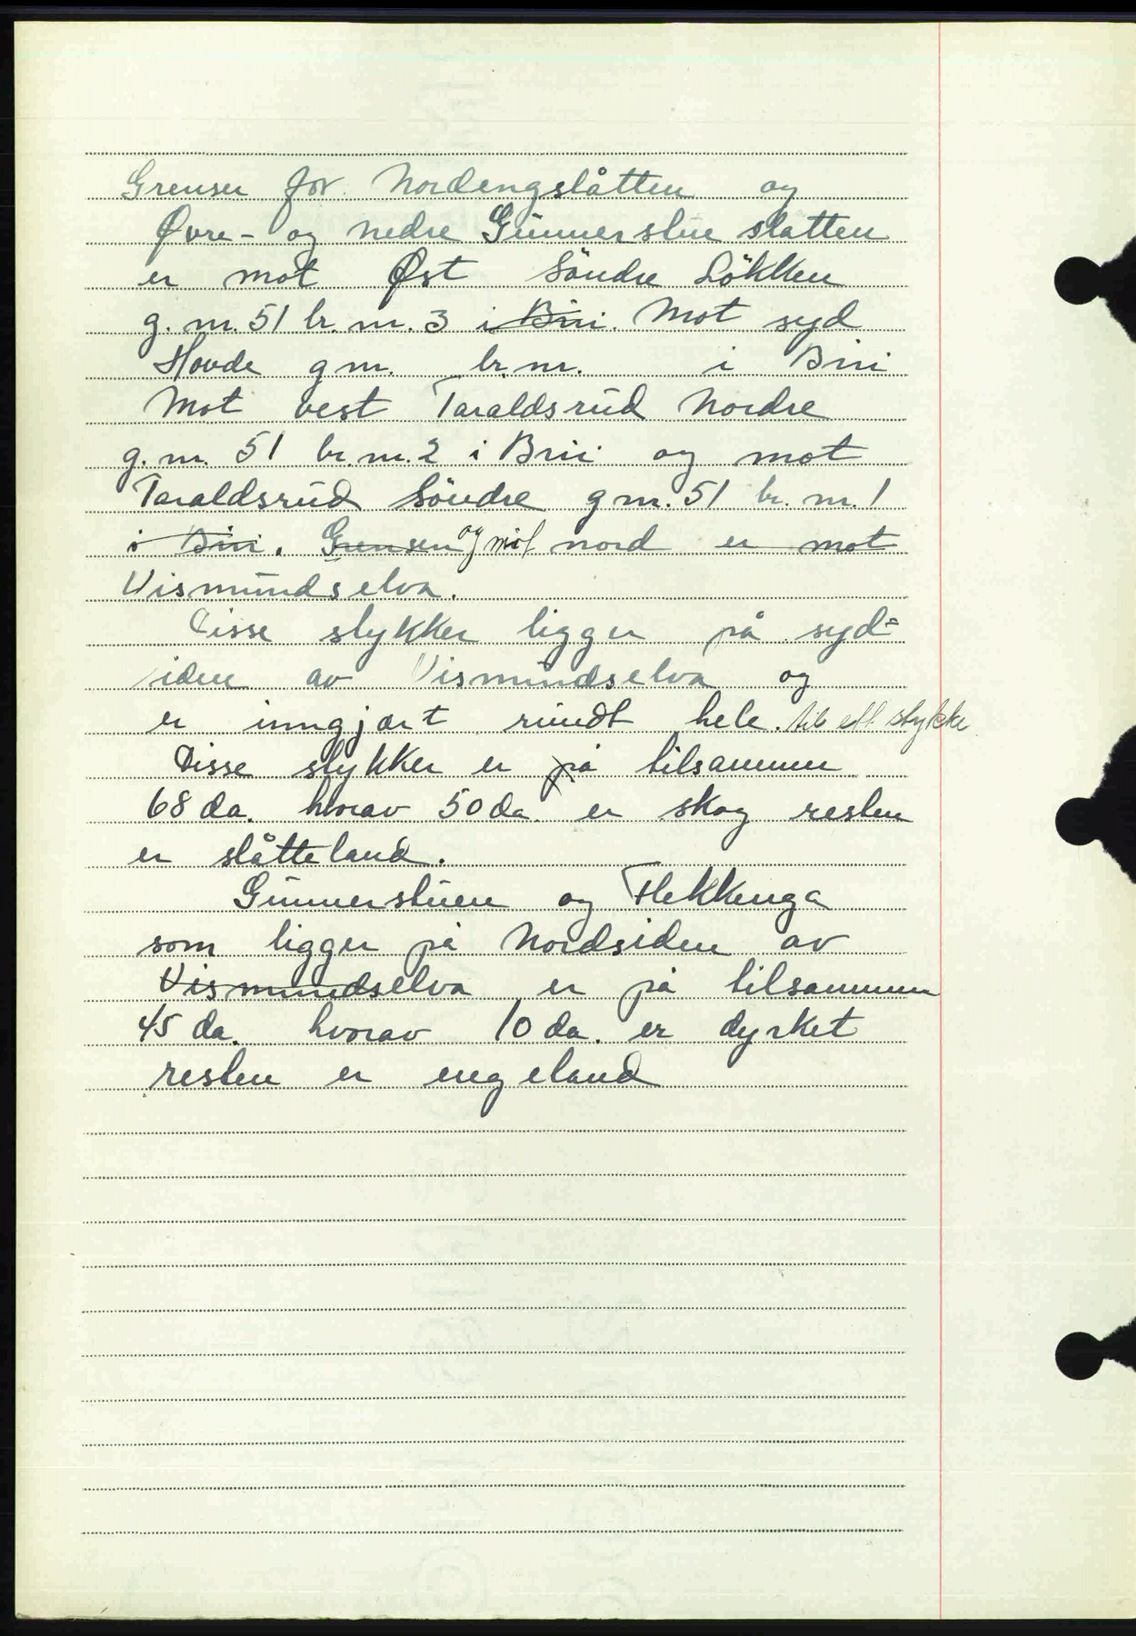 Grenser for Nordengslåtten og
Øvre- og nedre Gunnerstue slåtten
er mot Øst Söndre Lökken
g. nr. 51 br. nr. 3 i Biri. Mot syd
Hovde g nr. br. nr. i Biri
Mot vest Taraldsrud Nordre
g. nr. 51 br. nr. 2 i Biri og mot
Taraldsrud Söndre g nr. 51 br. nr. 1
i Biri. Grensen og mot nord er mot
Vismundselva.
Disse stykker ligger på syd=
siden av Vismundselva og
er inngjært rundt hele. til ett stykke
Disse stykker er på tilsammen
68 da. hvorav 50 da. er skog resten
er slåtteland.
Gunnerstuen og Flekkenga
som ligger på Nordsiden av
Vismundselva er på tilsammen
45 da. hvorav 10 da. er dyrket
resten er engeland